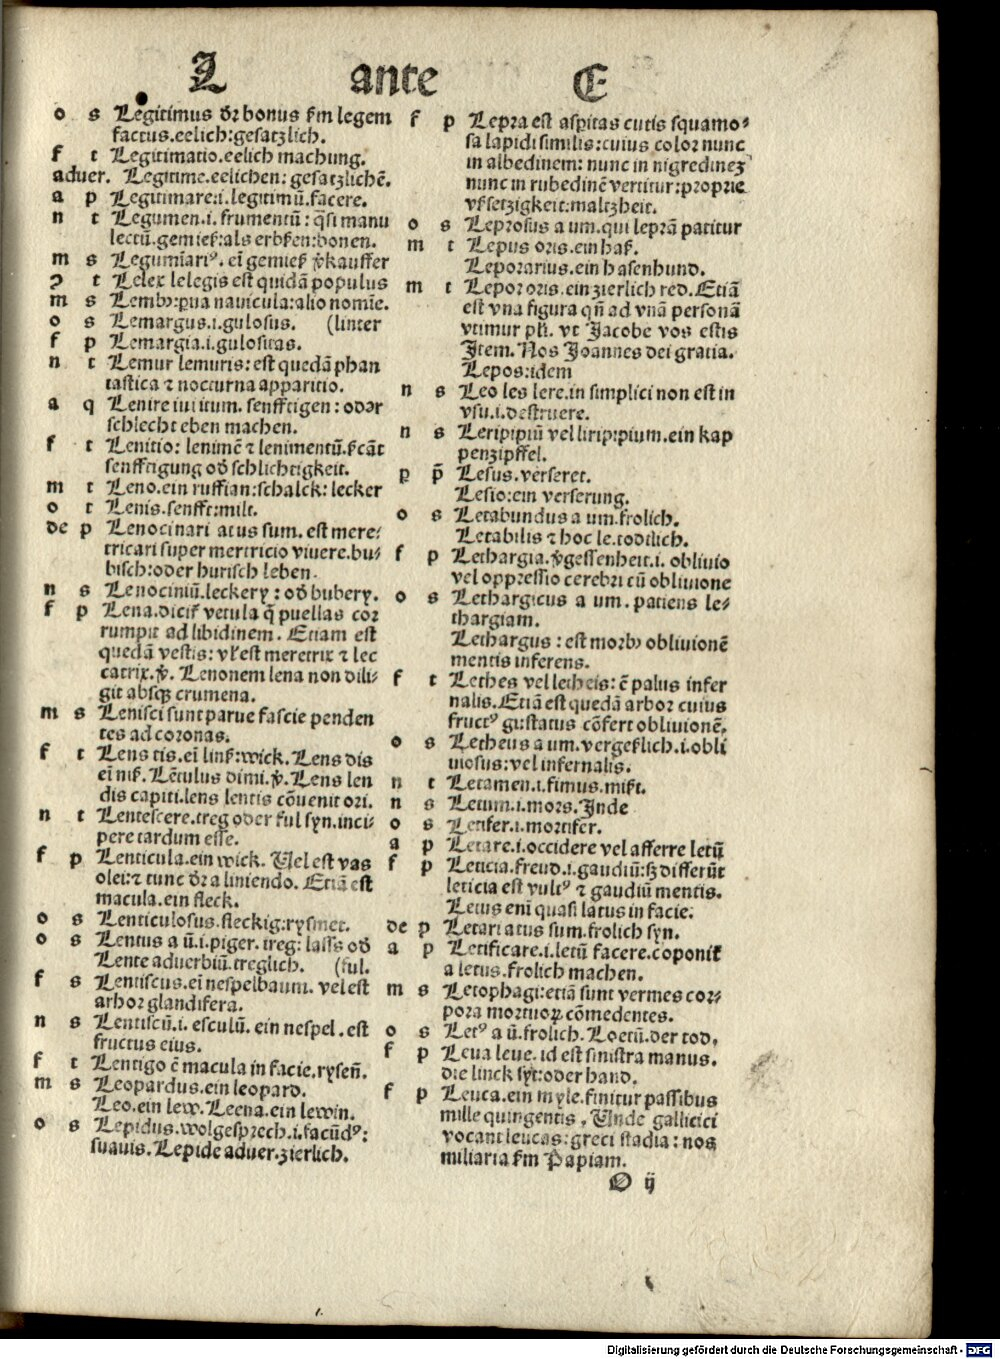 L ante E
o s Legitimus dr̃ bonus f̃m legem
factus.eelich:gesatzlich.
f t Legitimatio.eelich machung.
aduer. Legitime.eelichen: gesatzlichẽ.
a p Legitimare:i.legitimũ.facere.
n t Legumen.i.frumentũ: q̃si manu
lectũ.gemieß:als erbsen:bonen.
m s Legumĩariꝰ. eĩ gemieß v̾kauffer
ꝯ t Lelex lelegis est quidã populus
m s Lembꝰ:pua nauicula:alio nomĩe.
o s Lemargus.i.gulosus. (linter
f p Lemargia.i.gulositas.
n t Lemur lemuris: est quedã phan
tastica ⁊ nocturna apparitio.
a q Lenire iui itum. senfftigen: oder
schlecht eben machen.
f t Lenitio: lenimẽ ⁊ lenimentũ.
senfftigung od̾ schlichtigkeit.
m t Leno.ein ruffian:schalck: lecker
o t Lenis.senfft:milt.
de p Lenocinari atus sum. est mere⸗
tricari super mertricio viuere.bu⸗
bisch:oder hurisch leben.
n s Lenociniũ.leckery: od̾ bubery.
f p Lena.dicit̾ vetula q̃ puellas cor
rumpit ad libidinem. Etiam est
quedã vestis: vl̾ est meretrix ⁊ lec
catrix.v̾. Lenonem lena non dili⸗
git absqꝫ crumena.
m s Lenisci sunt parue fascie penden
tes ad coronas.
f t Lens tis. eĩ linß:wick. Lens dis
eĩ niß. Lẽtulus dimi.v̾. Lens len
dis capiti.lens lentis cõuenit ori.
n t Lentescere.treg oder ful syn.inci⸗
pere tardum esse.
f p Lenticula.ein wick. Uel est vas
olei:⁊ tunc dr̃ a liniendo. Etiã est
macula.ein fleck.
o s Lenticulosus.fleckig:rysmet.
o s Lentus a ũ.i.piger. treg: lass od̾
Lente aduerbiũ.treglich. (ful.
f s Lentiscus.eĩ nespelbaum. vel est
arbor glandifera.
n s Lentiscũ.i. esculũ. ein nespel.est
fructus eius.
f t Lentigo ẽ macula in facie.rysen̄.
m s Leopardus.ein leopard.
Leo.ein lew.Leena.ein lewin.
o s Lepidus.wolgesprech.i.facũdꝰ:
suauis.Lepide aduer.zierlich.
f p Lepra est asp̱itas cutis squamo⸗
sa lapidi similis:cuius color nunc
in albedinem: nunc in nigredineꝫ
nunc in rubedinẽ vertitur:proprie
vßsetzigkeit:maltzheit.
o s Leprosus a um.qui leprã patitur
m t Lepus oris.ein haß.
Leporarius.ein hasenhund.
m t Lepor oris.ein zierlich red.Etiã
est vna figura qñ ad vnã personã
vtimur pl̾i. vt Jacobe vos estis
Item. Nos Joannes dei gratia.
Lepos:idem
n s Leo les lere.in simplici non est in
vsu.i.destruere.
n s Leripipiũ vel liripipium.ein kap
penzipffel.
p p̃ Lesus.verseret.
Lesio:ein verserung.
o s Letabundus a um.frolich.
Letabilis ⁊ hoc le.todtlich.
f p Lethargia.v̾gessenheit.i. obliuio
vel oppressio cerebri cũ obliuione
o s Lethargicus a um. patiens le⸗
thargiam.
Lethargus: est morbꝰ obliuionẽ
mentis inferens.
f t Lethes vel letheis: ẽ palus infer
nalis.Etiã est quedã arbor cuius
fructꝰ gustatus cõfert obliuionẽ.
o s Letheus a um.vergeßlich.i.obli
uiosus:vel infernalis.
n t Letamen.i.fimus.mist.
n s Letum.i.mors.Inde
o s Letifer.i.mortifer.
a p Letare.i.occidere vel afferre letũ
f p Leticia.freud.i.gaudiũ:sꝫ differũt
leticia est vultꝰ ⁊ gaudiũ mentis.
Letus enĩ quasi latus in facie.
de p Letari atus sum.frolich syn.
a p Letificare.i.letũ facere.coponit̾
a letus.frolich machen.
m s Letophagi:etiã sunt vermes cor⸗
pora mortuoꝝ cõmedentes.
o s Letꝰ a ũ.frolich. Loetũ.der tod.
f p Leua leue. id est sinistra manus.
die linck syt:oder hand.
f p Leuca.ein myle.finitur passibus
mille quingentis. Unde gallicici
vocant leucas:greci stadia: nos
miliaria f̃m Papiam.
O ij
Digitalisierung gefördert durch die Deutsche Forschungsgemeinschaft - DFG